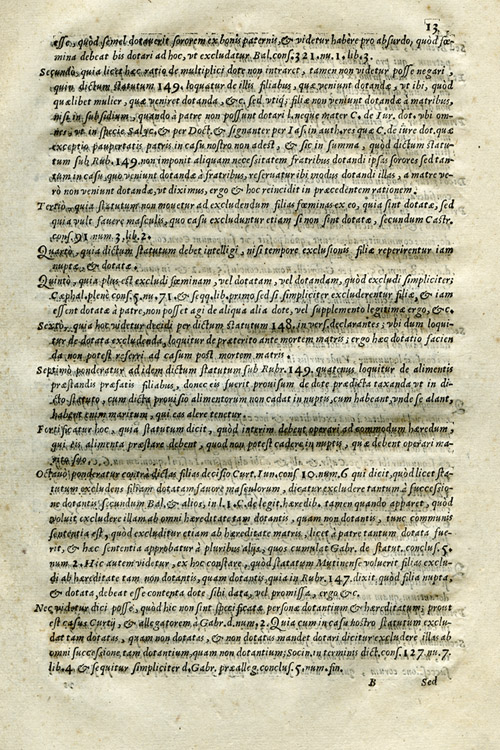 13
esse, quòd semel dotauerit sororem ex bonis paternis, & videtur habere pro absurdo, quòd fœ-
mina debeat bis dotari ad hoc, vt excludatur Bal. cons. 321. nu. 1. lib. 3.
Secundò, quia licet hæc ratio de multiplici dote non intraret, tamen non videtur posse negari,
quin dictum statutum 149. loquatur de illis filiabus, quæ veniunt dotandæ, vt ibi, quòd
quælibet mulier, quæ veniret dotanda, &c. sed vtiq; filiæ non veniunt dotandæ à matribus,
nisi in subsidium, quando à patre non possunt dotari l. neque mater C. de Iur. dot. vbi om-
nes, vt in specie Salyc. & per Doct. & signanter per Ias. in auth. res quæ C. de iure dot. quæ
exceptio paupertatis patris in casu nostro non adest, & sic in summa, quòd dictum statu-
tum sub Rub. 149. non imponit aliquam necessitatem fratribus dotandi ipsas sorores sed tan-
tum in casu, quo veniunt dotandæ à fratribus, reseruatur ibi modus dotandi illas, a matre ve-
rò non veniunt dotandæ, vt diximus, ergo & hoc reincidit in præcedentem rationem.
Tertiò, quia statutum non mouetur ad excludendum filias fœminas ex eo, quia sint dotatæ, sed
quia vult fauere masculis, quo casu excluduntur etiam si non sint dotatæ, secundum Castr.
cons. 91. num. 3. lib. 2.
Quartò, quia dictum statutum debet intelligi, nisi tempore exclusionis filiæ reperirentur iam
nuptæ, & dotatæ.
Quintò, quia plus est excludi fœminam, vel dotatam, vel dotandam, quòd excludi simpliciter;
Cæphal. plenè cons. 5. nu. 71. & seqq. lib. primo sed si simpliciter excluderentur filiæ, & iam
essent dotatæ à patre, non posset agi de aliqua alia dote, vel supplemento legitimæ ergo, &c.
Sextò, quia hoc videtur decidi per dictum statutum 148. in vers. declarantes; vbi dum loqui-
tur de dotata excludenda, loquitur de præterito ante mortem matris; ergo hæc dotatio facien
da non potest referri ad casum post mortem matris.
Septimò ponderatur ad idem dictum statutum sub Rubr. 149. quatenus loquitur de alimentis
præstandis præfatis filiabus, donec eis fuerit prouisum de dote prædicta taxanda vt in di-
cto statuto, cum dicta prouisio alimentorum non cadat in nuptis, cum habeant, vnde se alant,
habent enim maritum, qui eas alere tenetur.
Fortificatur hoc, quia statutum dicit, quòd interim debent operari ad commodum hæredum,
qui eis alimenta præstare debent, quod non potest cadere in nuptis, quæ debent operari ma-
rito suo.
Octauò ponderatur contra dictas filias decisio Curt. Iun. cons. 10. num. 6 qui dicit, quòd licet sta-
tutum excludens filiam dotatam fauore masculorum, dicatur excludere tantum à successio-
ne dotantis secundum Bal. & alios, in l. 1. C. de legit. hæredib. tamen quando apparet, quòd
voluit excludere illam ab omni hæreditate tam dotantis, quam non dotantis, tunc communis
sententia est, quòd excluditur etiam ab hæreditate matris, licet à patre tantum dotata fue-
rit, & hæc sententia approbatur à pluribus alijs, quos cumulat Gabr. de statut. conclus. 5.
num. 2. Hic autem videtur, ex hoc constare, quòd statutum Mutinense voluerit filias exclu-
di ab hæreditate tam non dotantis, quam dotantis, quia in Rubr. 147. dixit quòd filia nupta,
& dotata, debeat esse contenta dote sibi data, vel promissa, ergo &c.
Nec videtur dici posse, quòd hic non sint specificatæ persona dotantium & hæreditatum; prout
est casus Curtij, & allegatorem à Gabr. d. num. 2. Quia cum in casu nostro statutum exclu-
dat tam dotatas, quam non dotatas, & non dotatas mandet dotari dicitur excludere illas ab
omni successione, tam dotantium, quam non dotantium; Socin. in terminis dict. cons. 127. nu. 7.
lib. 4. & sequitur simpliciter d. Gabr. præalleg. conclus. 5. num. fin.
B Sed